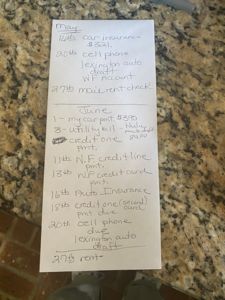 May
16th car insurance
$321.
20th cell phone
lexington auto
draft
WF Account
27th mail rent check
June
1 - my car pmt $380
3 - utility bill - Hulu
credit one
pmt.
11th N.F credit line
pmt.
13th NF credit card
pmt.
16th Auto Insurance
18th credit one (second)
pmt due card
20th cell phone
due
lexington auto
draft
27th rent -